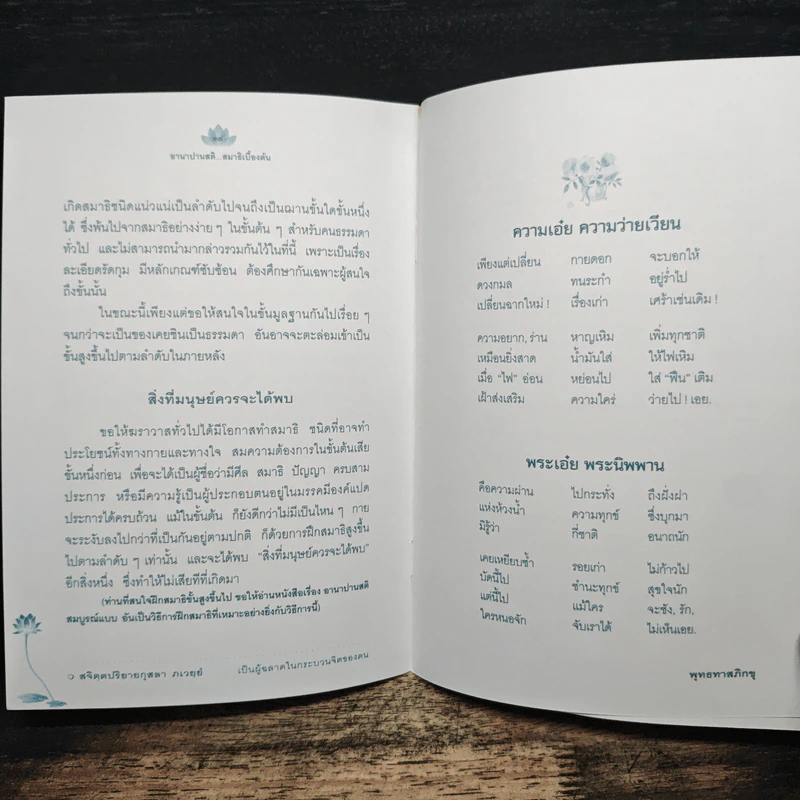 อานาปานสติ...สมาธิเบื้องต้น
เกิดสมาธิชนิดแน่วแน่เป็นลำดับไปจนถึงเป็นฌานขั้นใดขั้นหนึ่ง
ได้ ซึ่งพ้นไปจากสมาธิอย่างง่าย ๆ ในขั้นต้น ๆ สำหรับคนธรรมดา
ทั่วไป และไม่สามารถนำมากล่าวรวมกันไว้ในที่นี้ เพราะเป็นเรื่อง
ละเอียดรัดกุม มีหลักเกณฑ์ซับซ้อน ต้องศึกษากันเฉพาะผู้สนใจ
ถึงขั้นนั้น
ในขณะนี้เพียงแต่ขอให้สนใจในขั้นมูลฐานกันไปเรื่อย ๆ
จนกว่าจะเป็นของเคยชินเป็นธรรมดา อันอาจจะตะล่อมเข้าเป็น
ขั้นสูงขึ้นไปตามลำดับในภายหลัง
สิ่งที่มนุษย์ควรจะได้พบ
ขอให้ฆราวาสทั่วไปได้มีโอกาสทำสมาธิ ชนิดที่อาจทำ
ประโยชน์ทั้งทางกายและทางใจ สมความต้องการในขั้นต้นเสีย
ขั้นหนึ่งก่อน เพื่อจะได้เป็นผู้ชื่อว่ามีศีล สมาธิ ปัญญา ครบสาม
ประการ หรือมีความรู้เป็นผู้ประกอบตนอยู่ในมรรคมีองค์แปด
ประการได้ครบถ้วน แม้ในขั้นต้น ก็ยังดีกว่าไม่มีเป็นไหน ๆ กาย
จะระงับลงไปกว่าที่เป็นกันอยู่ตามปกติ ก็ด้วยการฝึกสมาธิสูงขึ้น
ไปตามลำดับ ๆ เท่านั้น และจะได้พบ “สิ่งที่มนุษย์ควรจะได้พบ”
อีกสิ่งหนึ่ง ซึ่งทำให้ไม่เสียทีที่เกิดมา
(ท่านที่สนใจฝึกสมาธิขั้นสูงขึ้นไป ขอให้อ่านหนังสือเรื่อง อานาปานสติ
สมบูรณ์แบบ อันเป็นวิธีการฝึกสมาธิที่เหมาะอย่างยิ่งกับวิธีการนี้)
สจิตฺตปริยายกุสลา ภเวยฺยํ เป็นผู้ฉลาดในกระบวนจิตของตน
ความเอ๋ย ความว่ายเวียน
เพียงแต่เปลี่ยน กายดอก จะบอกให้
ดวงกมล ทนระกำ อยู่ร่ำไป
เปลี่ยนฉากใหม่ ! เรื่องเก่า เศร้าเช่นเดิม !
ความอยาก, ร่าน หาญเหิม เพิ่มทุกชาติ
เหมือนยิ่งสาด น้ำมันใส่ ให้ไฟเหิม
เมื่อ “ไฟ” อ่อน หย่อนไป ใส่ “ฟืน” เติม
เฝ้าส่งเสริม ความใคร่ ว่ายไป ! เอย.
พระเอ๋ย พระนิพพาน
คือความผ่าน ไปกระทั่ง ถึงฝั่งฝา
แห่งห้วงน้ำ ความทุกข์ ซึ่งบุกมา
มิรู้ว่า กี่ชาติ อนาถนัก
เคยเหยียบซ้ำ รอยเก่า ไม่ก้าวไป
บัดนี้ไป ชำนะทุกข์ สุขใจนัก
แต่นี้ไป แม้ใคร จะชัง, รัก,
ใครหนอจัก จับเราได้ ไม่เห็นเอย.
พุทธทาสภิกขุ